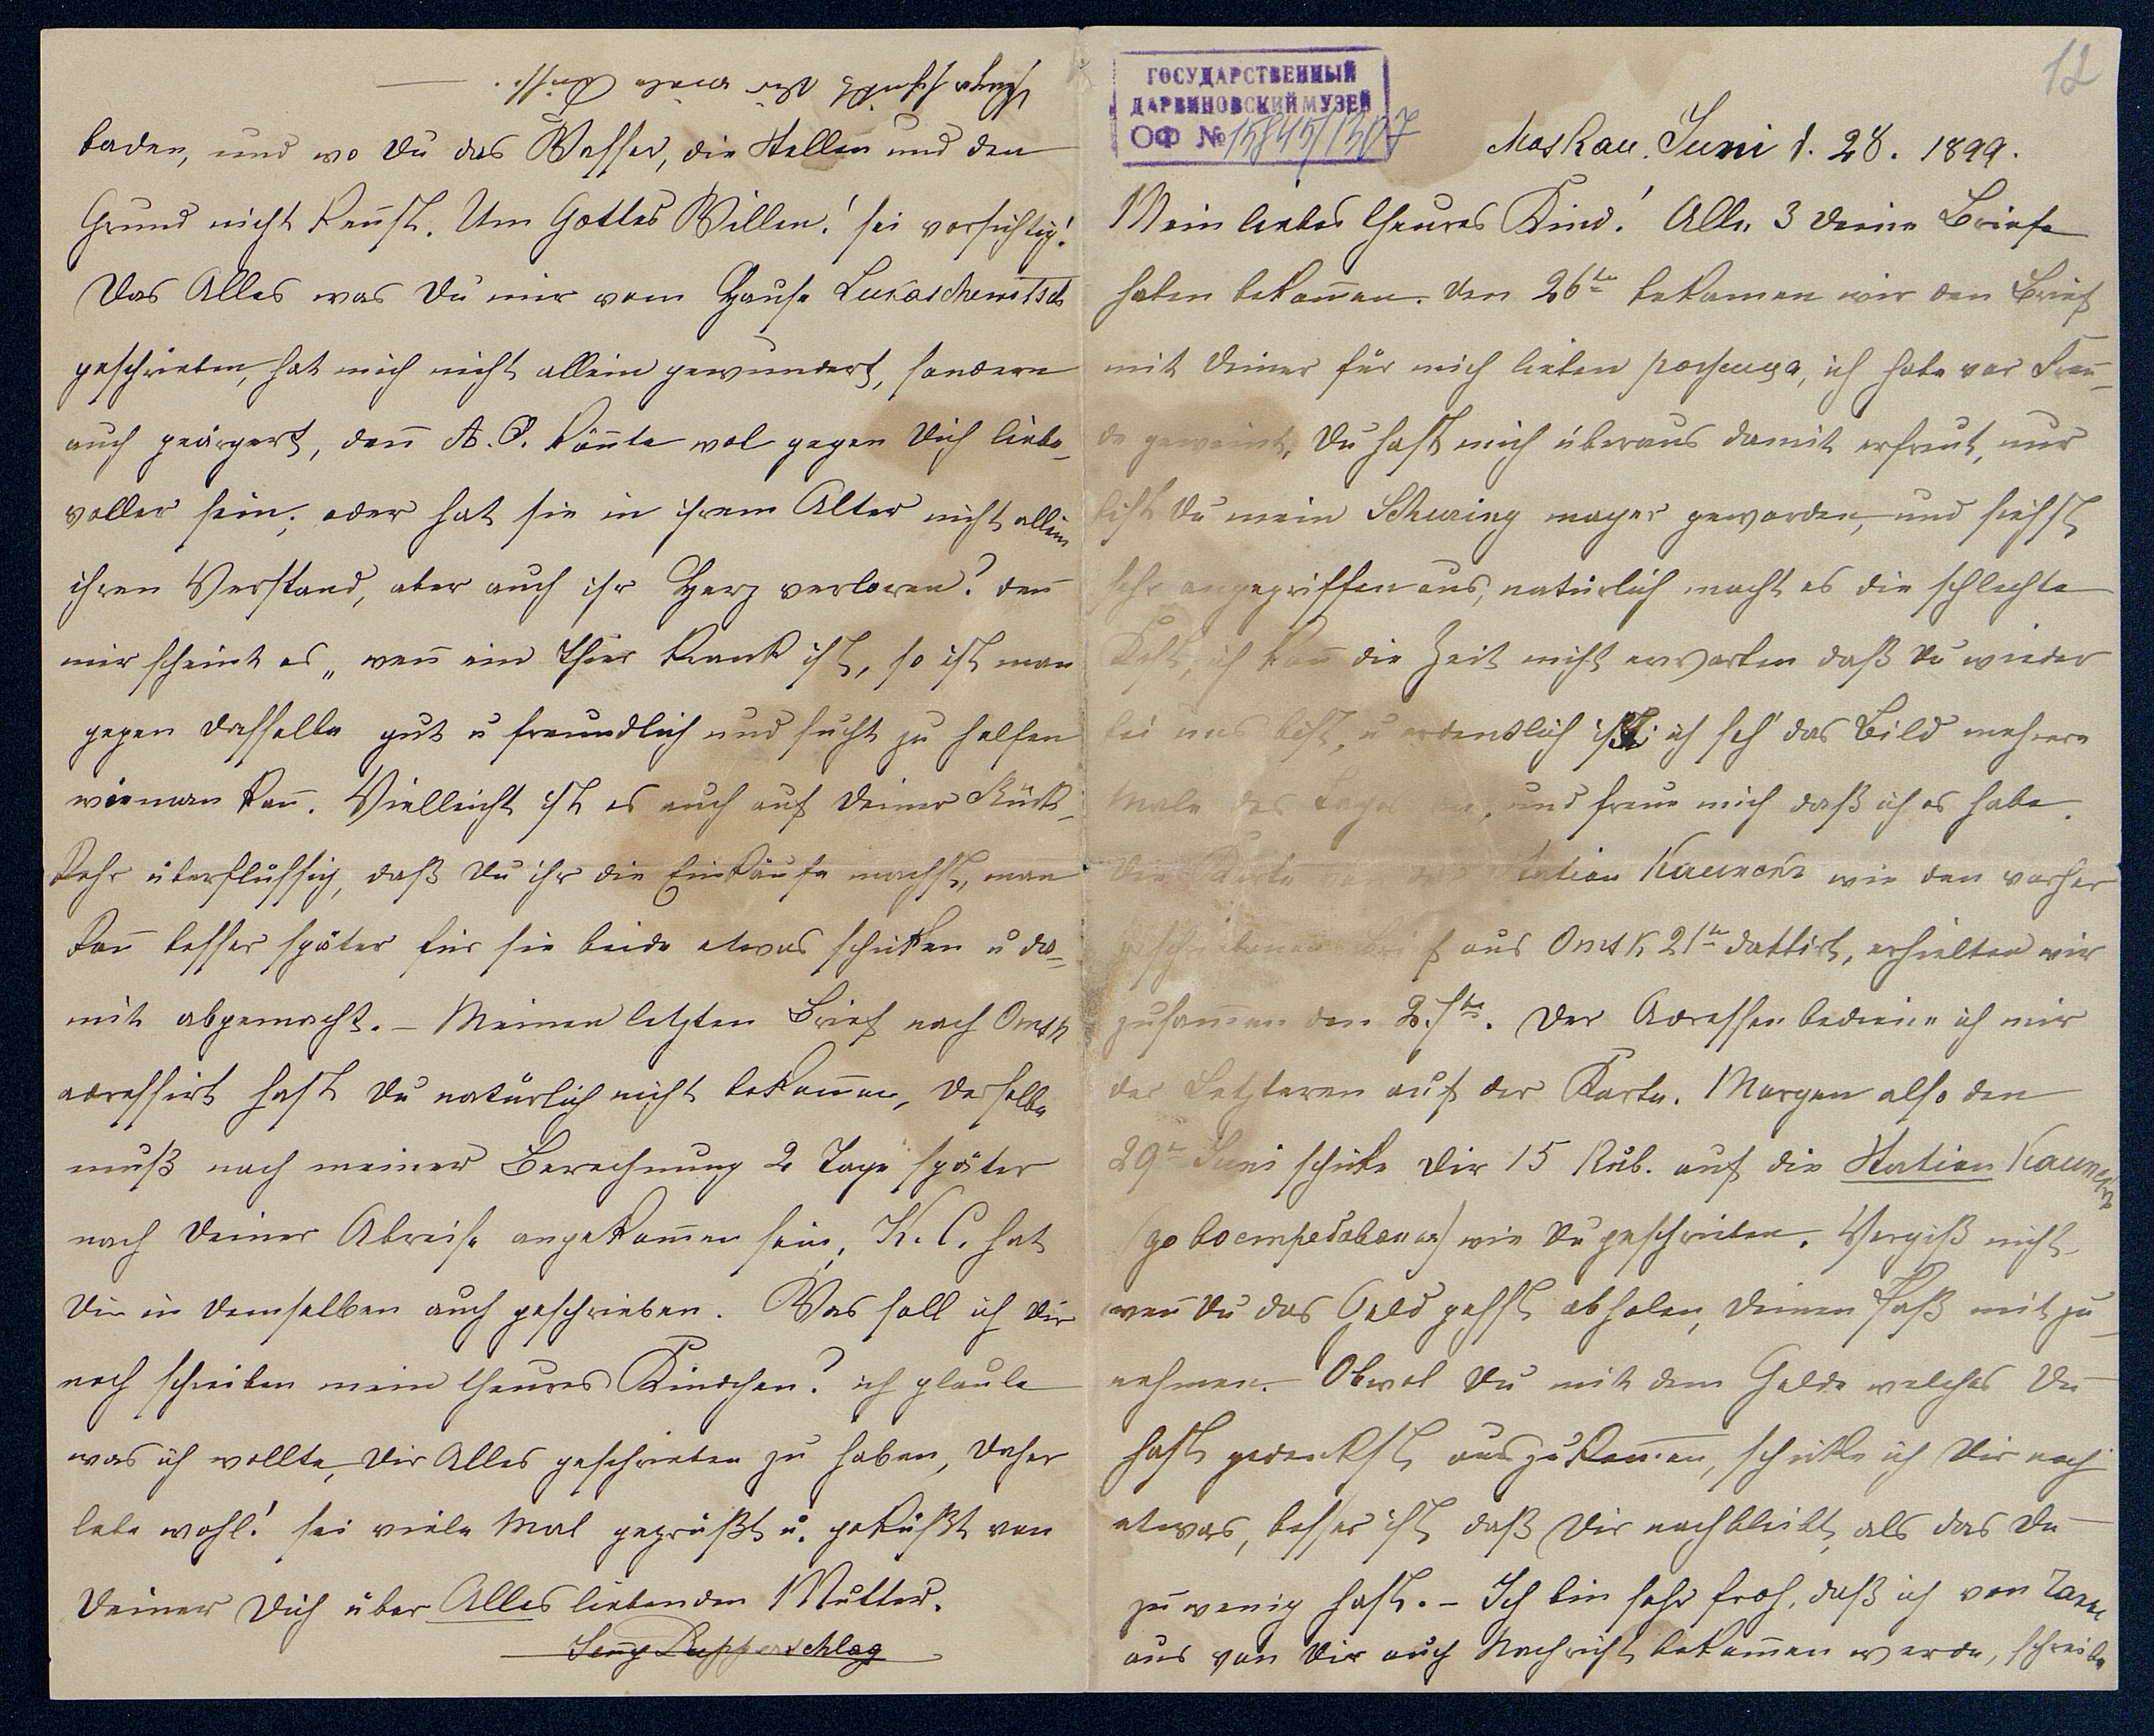 12
ГОСУДАРСТВЕННЫЙ
ДАРВИНОВСКИЙ МУЗЕЙ
ОФ № 15845/1307
Moskau. Juni d. 28. 1899.
Mein liebes theures Kind! Alle 3 Deine Briefe
haben bekom̄en. Den 26ten bekamen wir den Brief
mit Deiner für mich lieben ich habe vor Freu-
de geweint, Du hast mich überaus damit erfreut, nur
bist Du mein mager geworden, und siehst
sehr angegriffen aus, natürlich macht es die schlechte
Kost, ich kan̄ die Zeit nicht erwarten daß Du wieder
bei uns bist, u ordentlich ich seh' das Bild mehrere
Male des Tages an, und freue mich daß ich es habe.
Die Karte von der Station wie den vorher
geschriebenen Brief aus Omsk 21ten dattirt, erhielten wir
zusam̄en den 27ten. Der Adressen bediene ich mir
der Letzteren auf der Karte. Morgen also den
29ten Juni schicke Dir 15 Rub. auf die Station
(до востребованія) wie Du geschrieben. Vergiß nicht
wen̄ Du das Geld gehst abholen, Deinen Paß mit zu-
nehmen. Obwol Du mit dem Gelde welches Du
hast gedenkst auszukom̄en, schicke ich Dir noch
etwas, besser ist daß Dir nachbleibt, als das Du
zu wenig hast. – Ich bin sehr froh, daß ich von
aus von Dir auch Nachricht bekom̄en werde, schreibe
baden, und wo Du das Wasser, die Stellen und den
Grund nicht ken̄st. Um Gottes Willen! sei vorsichtig!
Das Alles was Du mir vom Hause Lukaschewitsch
geschrieben, hat mich nicht allein gewundert, sondern
auch geärgert, den̄ A. O. kön̄te wol gegen Dich liebe-
voller sein; oder hat sie in ihrem Alter nicht allein
ihren Verstand, aber auch ihr Herz verloren? den̄
mir scheint es „ wen̄ ein Thier krank ist, so ist man
gegen dasselbe gut u freundlich und sucht zu helfen
wie man kan̄. Vielleicht ist es auch auf Deiner Rück-
kehr überflüssig, daß Du ihr die Einkäufe machst, man
kan̄ besser später für sie beide etwas schicken u da-
mit abgemacht. – Meinen letzten Brief nach Omsk
adressirt hast Du natürlich nicht bekom̄en, derselbe
muß nach meiner Berechnung 2 Tage später
nach Deiner Abreise angekom̄en sein, K. C. hat
Dir in demselben auch geschrieben. Was soll ich Dir
noch schreiben mein theures Kindchen? ich glaube
was ich wollte, Dir Alles geschrieben zu haben, daher
lebe wohl! sei viele Mal gegrüßt u. geküßt von
Deiner Dich über Alles liebenden Mutter.